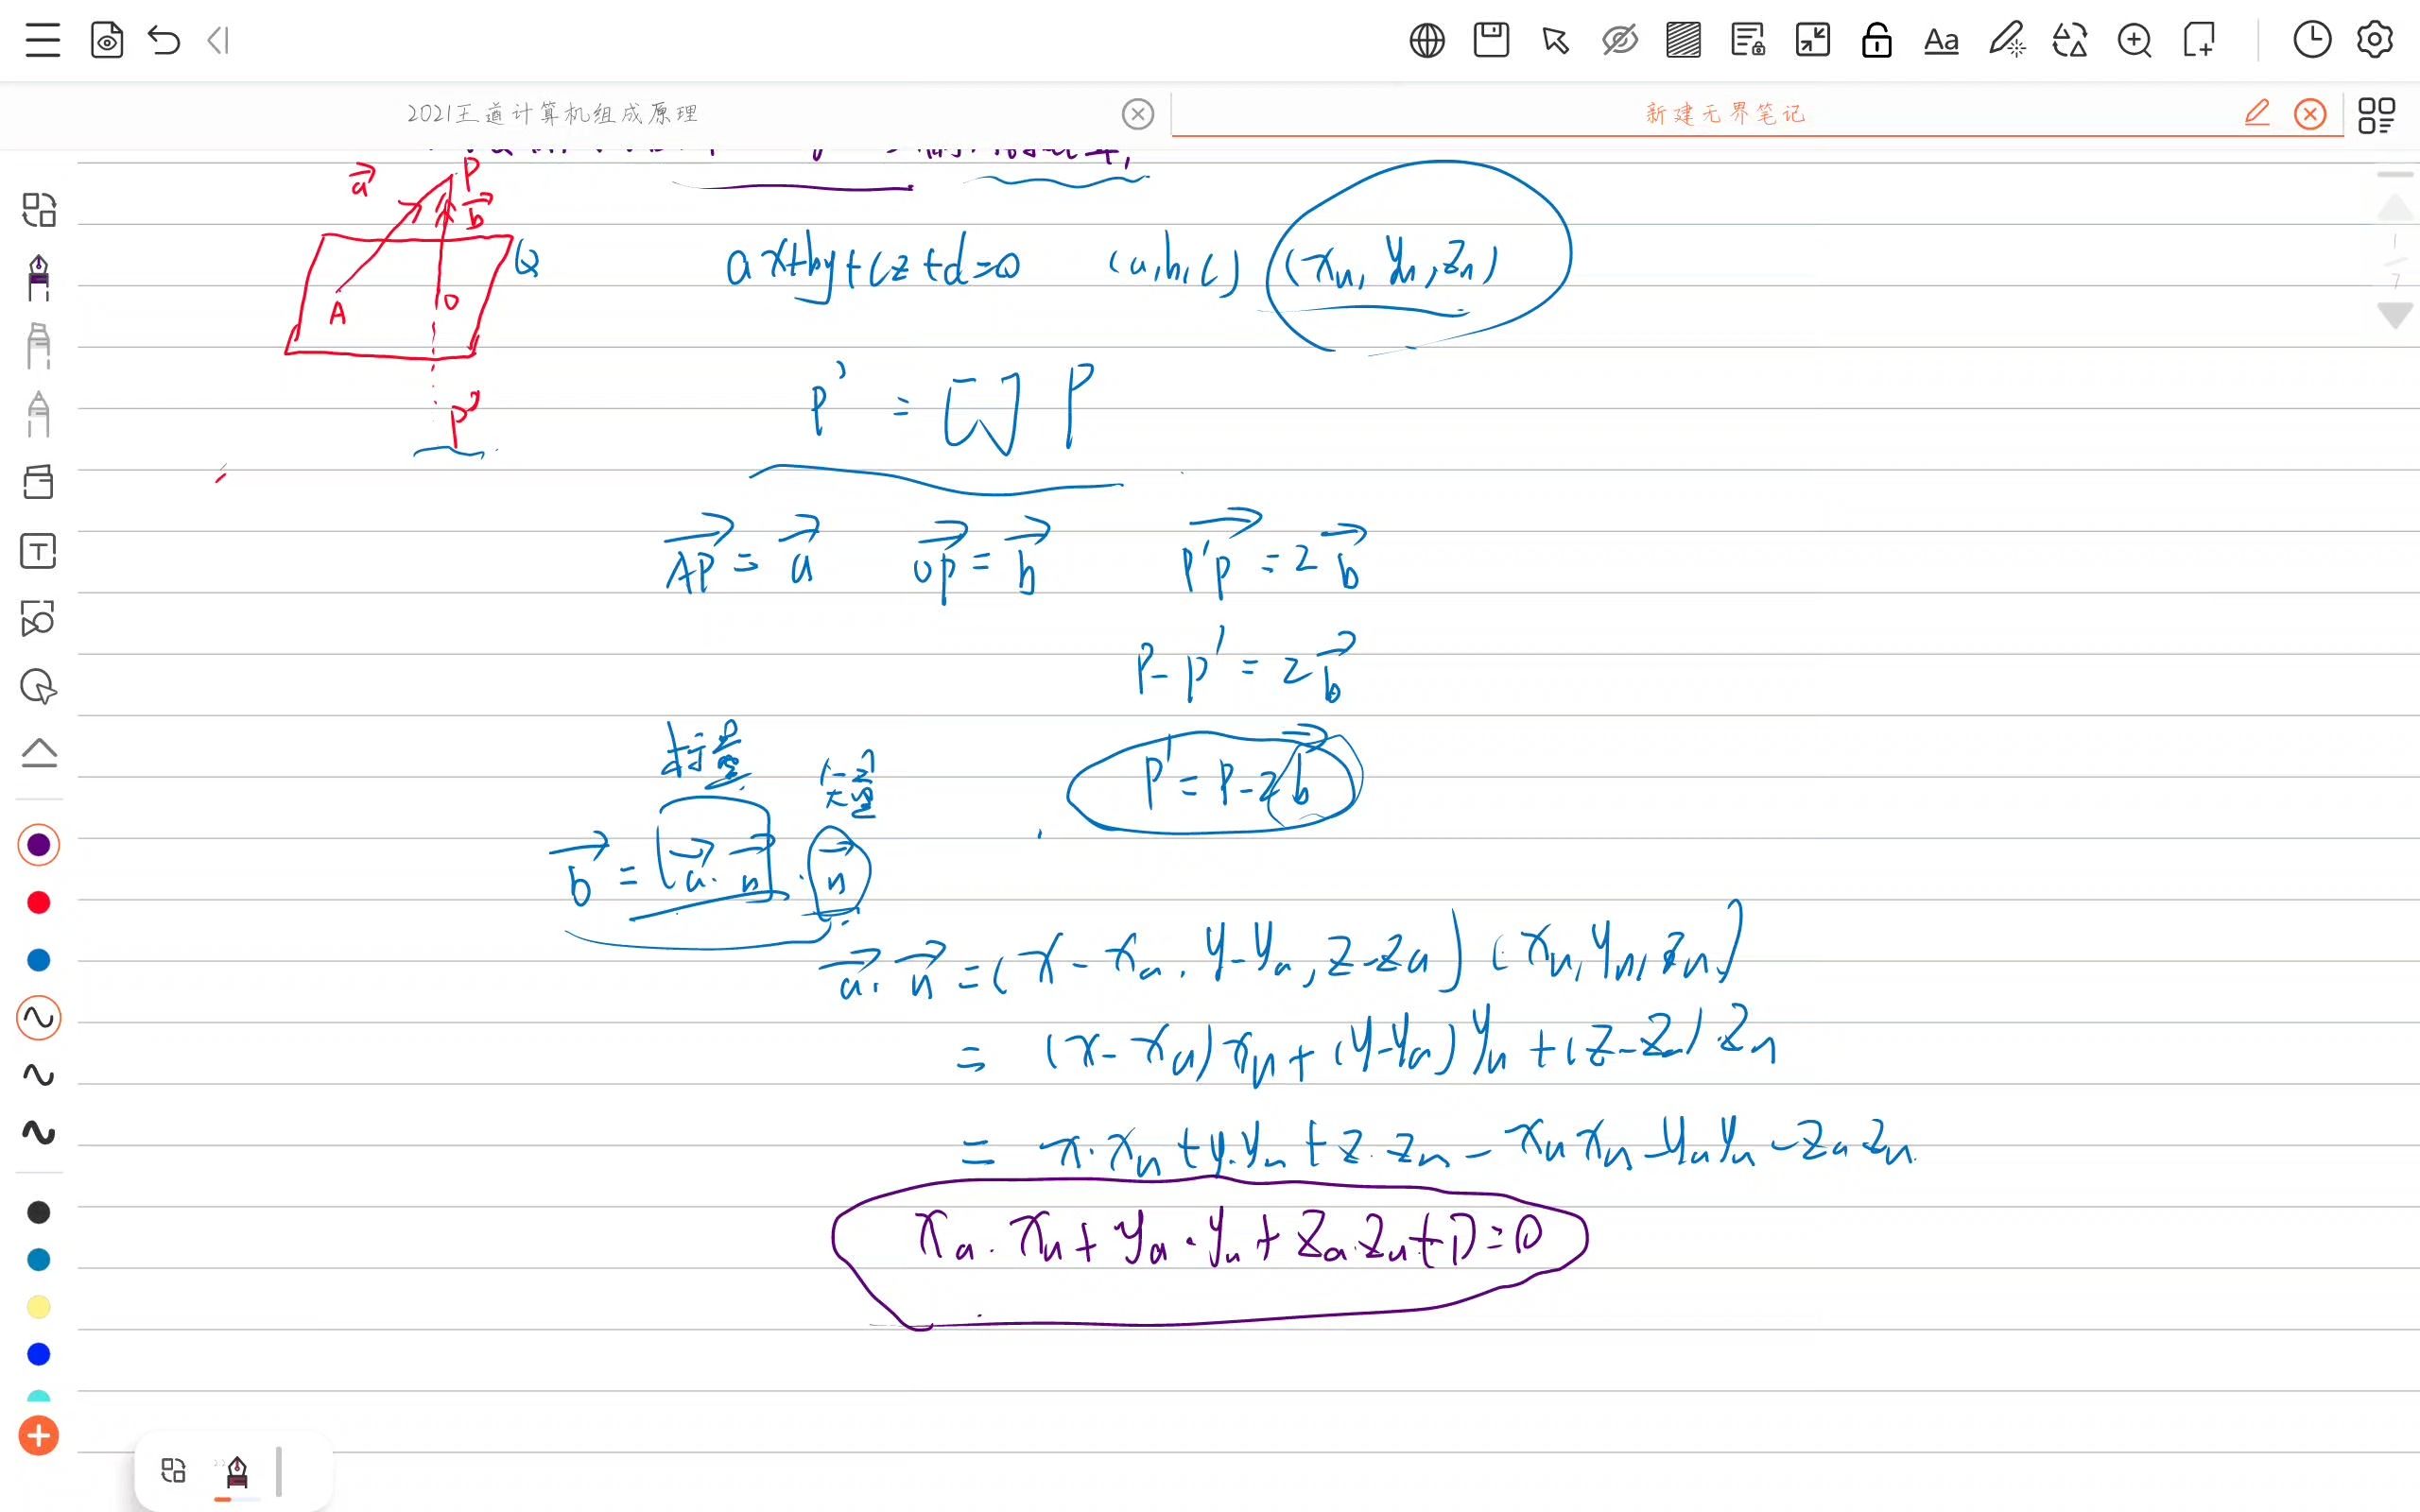 2021王道计算机组成原理
新建无界笔记
Aa
a⃗ P
b⃗
Q
A O
P'
ax+by+cz+d=0 (a,b,c) (xn, yn, zn)
P' = [ ] P
AP⃗ = a⃗ OP⃗ = b⃗ P'P⃗ = 2b⃗
P-P' = 2b⃗
标量 矢量
P' = P-2b⃗
b⃗ = [a⃗·n⃗]·n⃗
a⃗·n⃗ = (x-xa, y-ya, z-za)(xn, yn, zn)
= (x-xa)xn+(y-ya)yn+(z-za)zn
= x·xn+y·yn+z·zn-xaxn-yayn-za·zn
xa·xn+ya·yn+za·zn+D=0